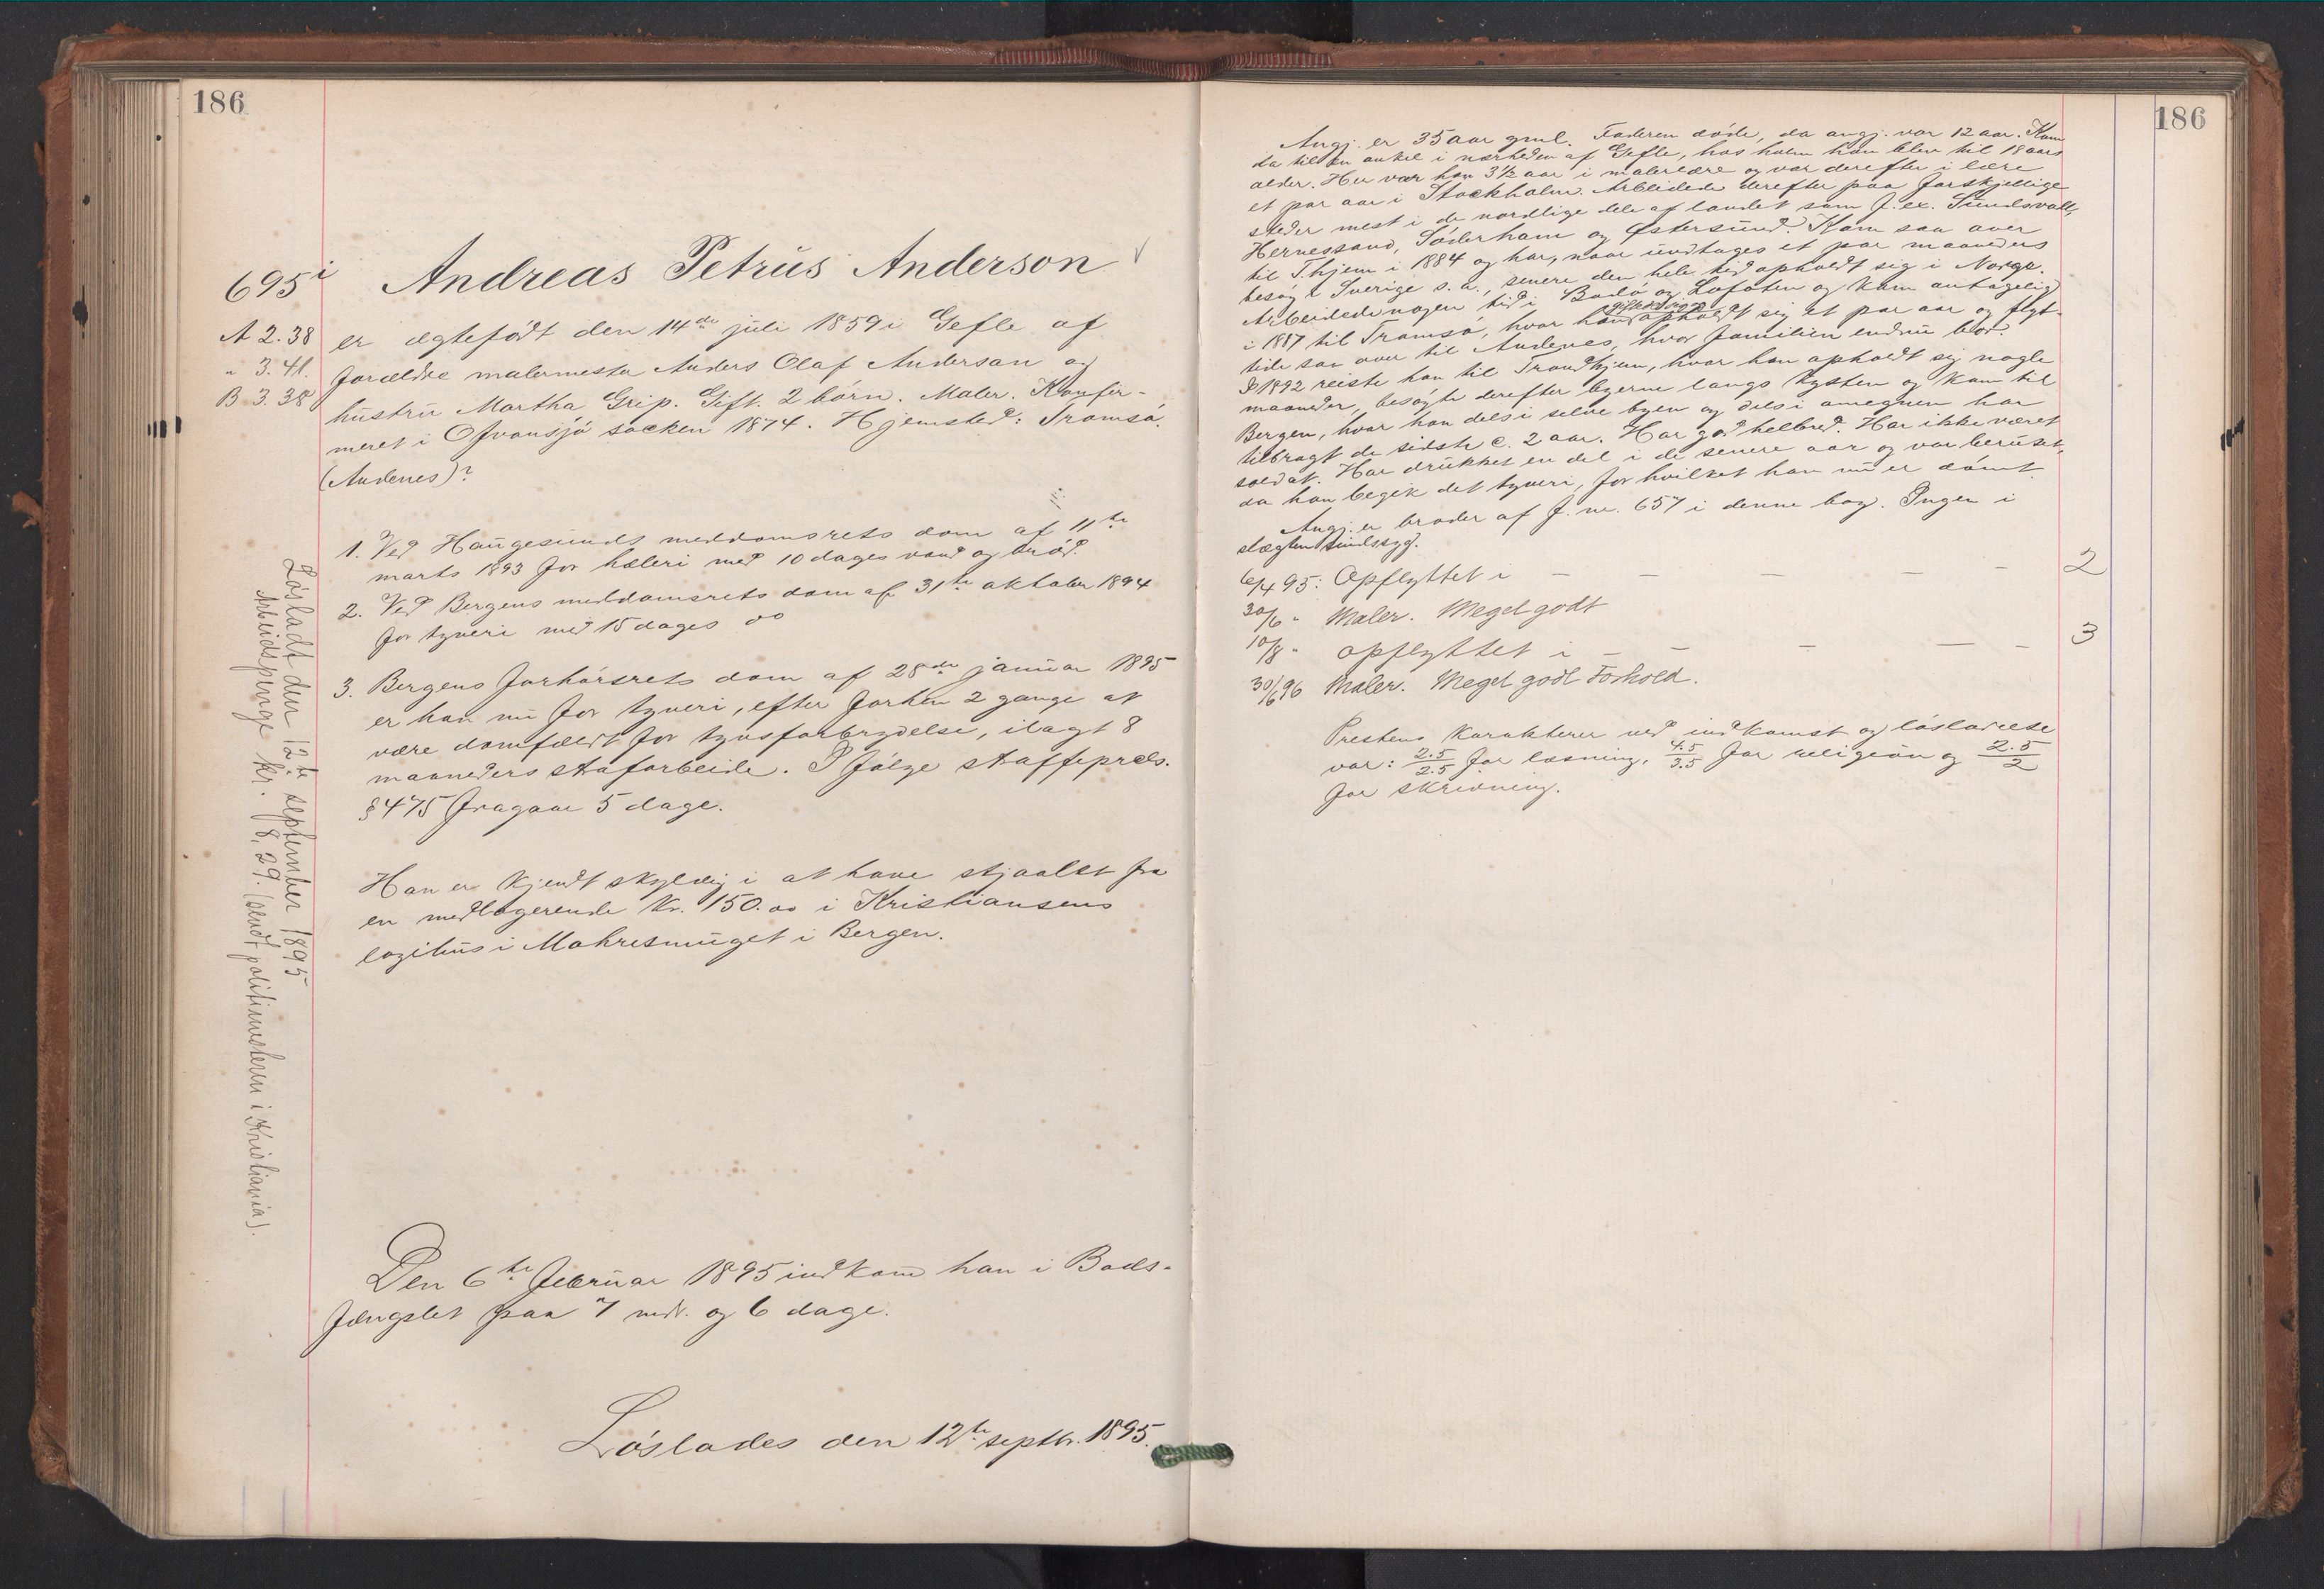 186
695 i Andreas Petrus Anderson
A 2.38 er ægtefødt den 14de juli 1859 i Gefle af
" 3.41. forældre malermester Anders Olaf Anderson og
B 3.38 hustru Martha Grip. Gift. 2 børn. Maler. Konfir-
meret i Ofvansjø socken 1874. Hjemsted: Tromsø.
(Andenes)?
1. Ved Haugesunds meddomsrets dom af 11te
marts 1893 for hæleri med 10 dages vand og brød.
2. Ved Bergens meddomsrets dom af 31te oktober 1894
for tyveri med 15 dages do
3. Bergens forhørsrets dom af 28de januar 1895
er han nu for tyveri, efter forhen 2 gange at
være domfældt for tyvsforbrydelse, ilagt 8
maaneders strafarbeide. I følge straffeprocls.
§ 475 fragaar 5 dage.
Han er kjendt skyldig i at have stjaalet fra
en medlogerende Kr. 150.00 i Kristiansens
logihus i Mohresmuget i Bergen.
Den 6te februar 1895 indkom han i Bods-
fængslet paa 7 mdr. og 6 dage.
Løslades den 12te septbr. 1895.
Løsladt den 12te september 1895
Arbeidspenge kr. 8,29. (sendt politimesteren i Kristiania).
186
Angj. er 35 aar gml. Faderen døde, da angj. var 12 aar. Kom
da til en onkel i nærheden af Gefle, hos hvem han blev til 18 aars
alder. Her var han 3 1/2 aar i malerlære og var derefter i lære
et par aar i Stockholm. Arbeidede derefter paa forskjellige
steder mest i de nordlige dele af landet som f. ex. Sundsvall,
Hernesand, Søderham og Østersund. Kom saa over
til Thjem i 1884 og har, naar undtages et par maaneders
besøg i Sverige s. a., senere den hele tid opholdt sig i Norge.
Arbeidede nogen tid i Bodø og Lofoten og kom antagelig
i 1887 til Tromsø, hvor han giftede sig og opholdt sig et par aar og flyt-
tede saa over til Andenes, hvor familien endnu bor.
I 1892 reiste han til Trondhjem, hvor han opholdt sig nogle
maaneder, besøgte derefter byerne langs kysten og kom til
Bergen, hvor han dels i selve byen og dels i omegnen har
tilbragt de sidste c. 2 aar. Har god helbred. Har ikke været
soldat. Har drukket en del i de senere aar og var beruset,
da han begik det tyveri, for hvilket han nu er dømt.
Angj. er broder af f. nr. 657 i denne bog. Ingen i
slægten sindssyg.
6/4 95: Opflyttet i — — — — — 2
30/6 " Maler. Meget godt
10/8 " opflyttet i — — — — — 3
30/6 96 Maler. Meget godt Forhold.
Prestens karakterer ved indkomst og løsladelse
var: 2.5/2.5 for læsning, 4.5/3.5 for religion og 2.5/2
for skrivning.